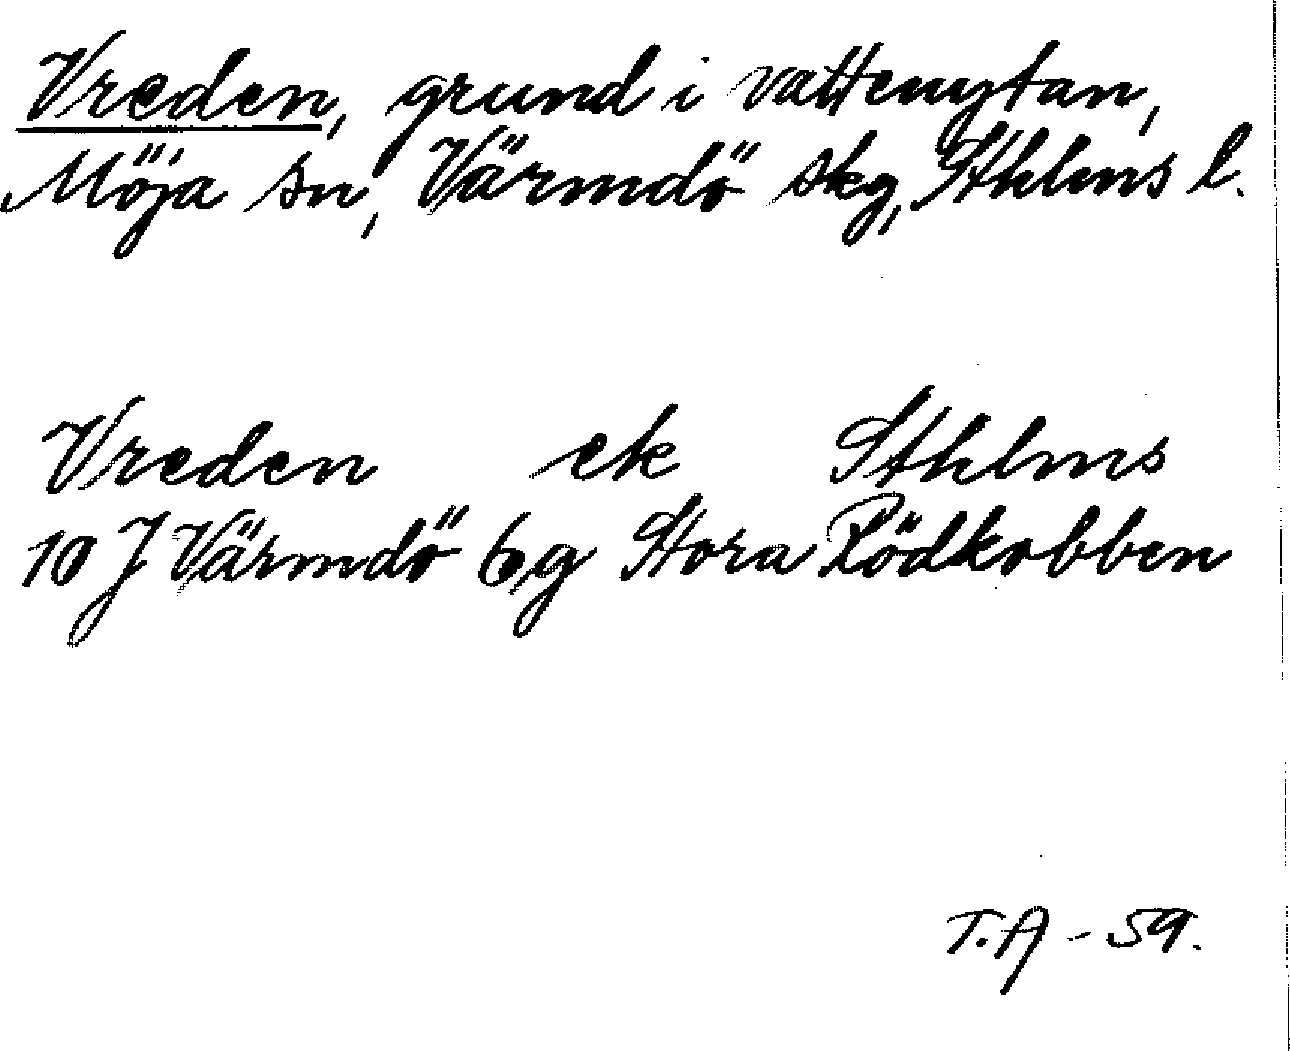 Vreden, grund i vattenytan,
Möja sn, Värmdö skg, Sthlms l.
Vreden ek Sthlms
10 J Värmdö 6g Stora Rödkobben
T.A - 59.